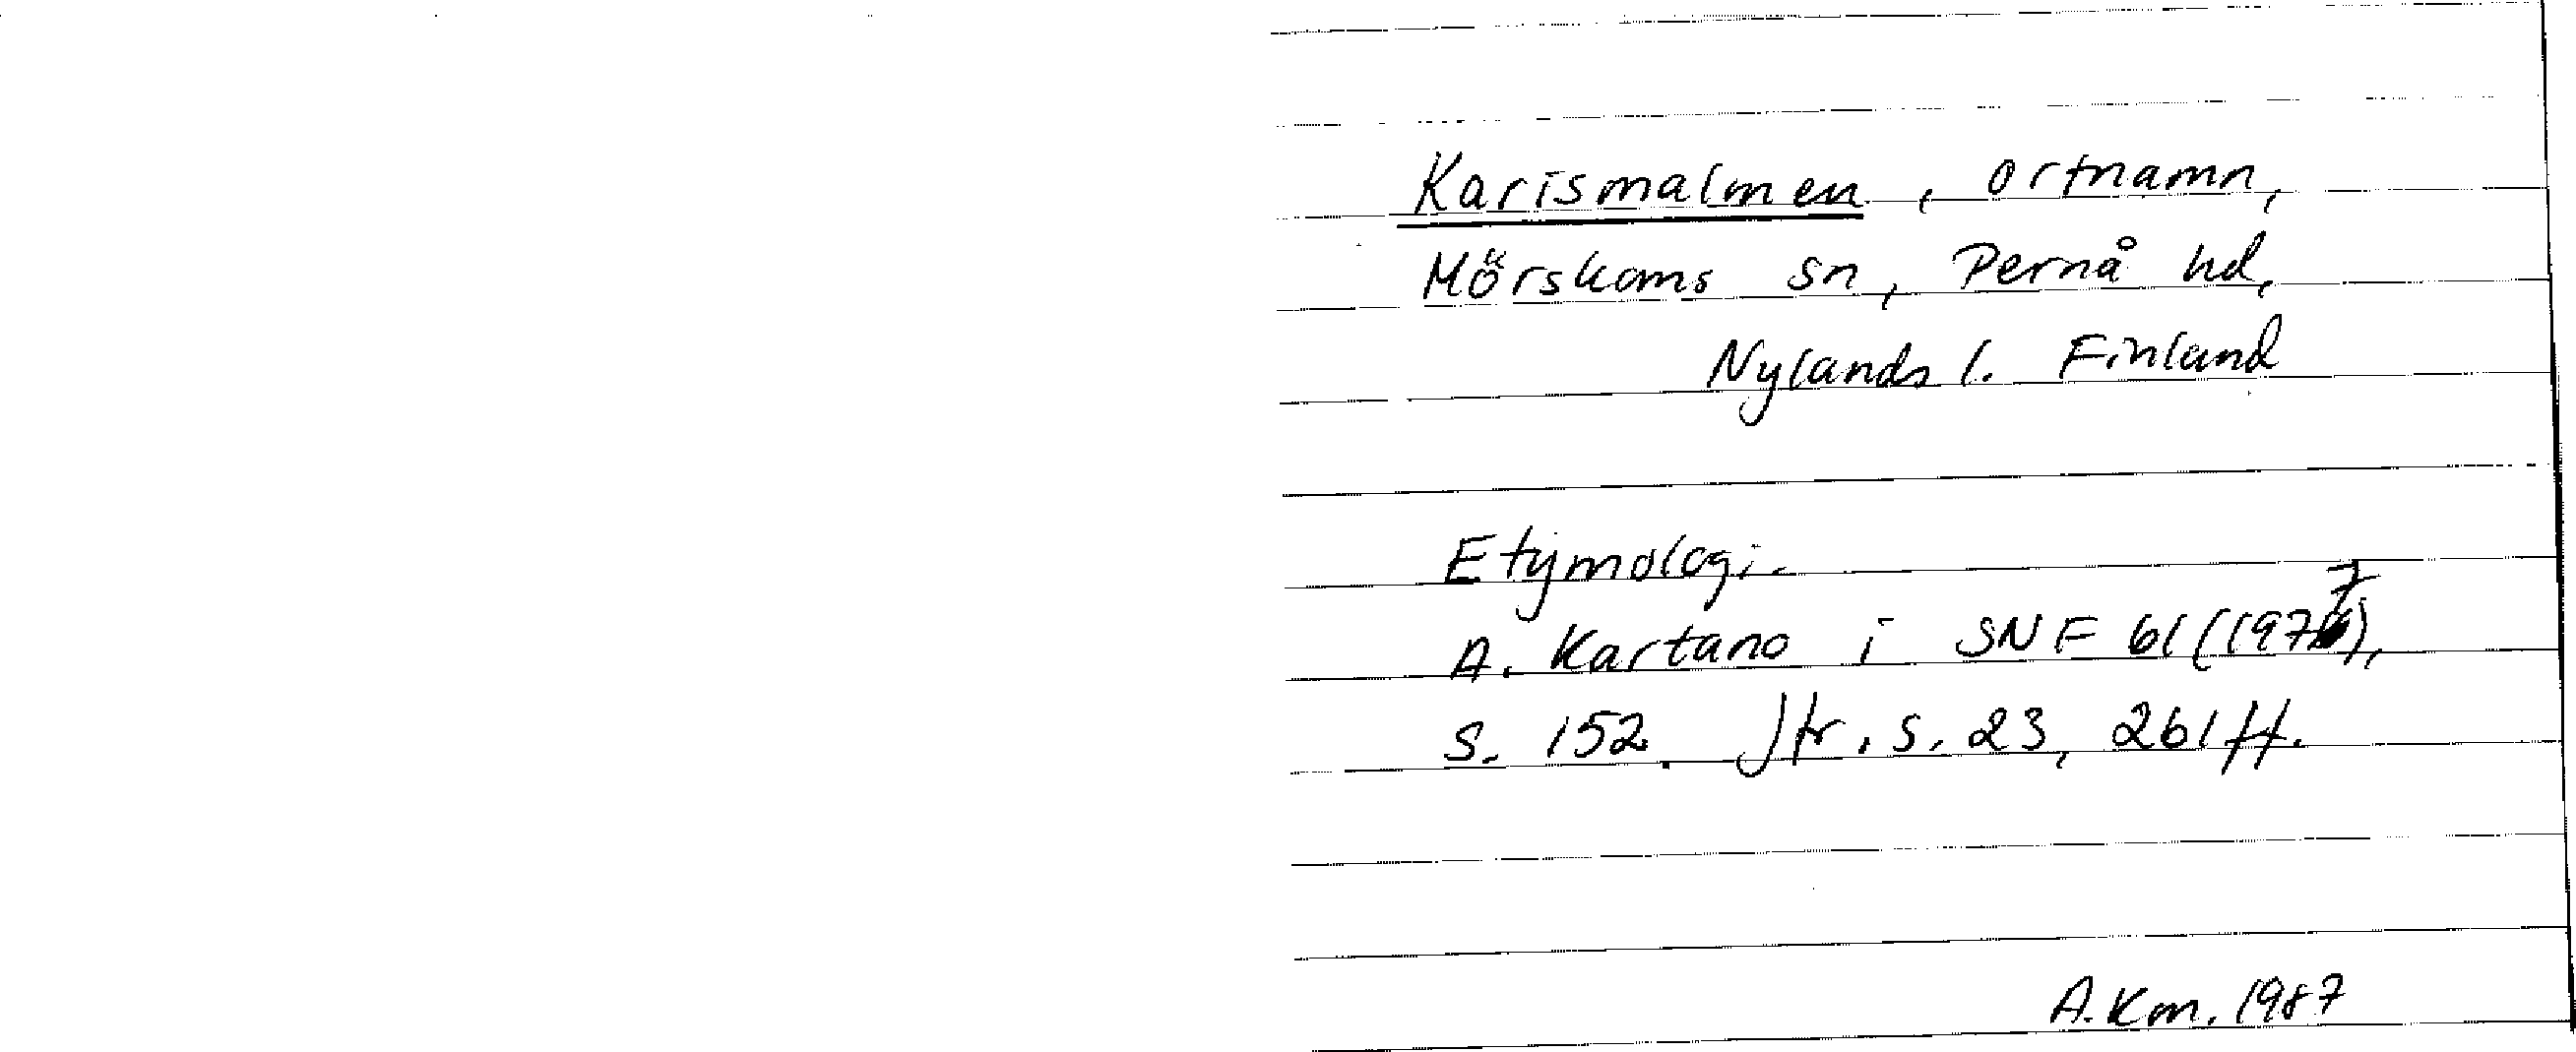 Karismalmen, ortnamn,
Mörskoms sn, Pernå hd,
Nylands l. Finland
Etymologi.
A. Kartano i SNF 61 (1977),
s. 152. Jfr. s. 23, 261 ff.
A. Km. 1987